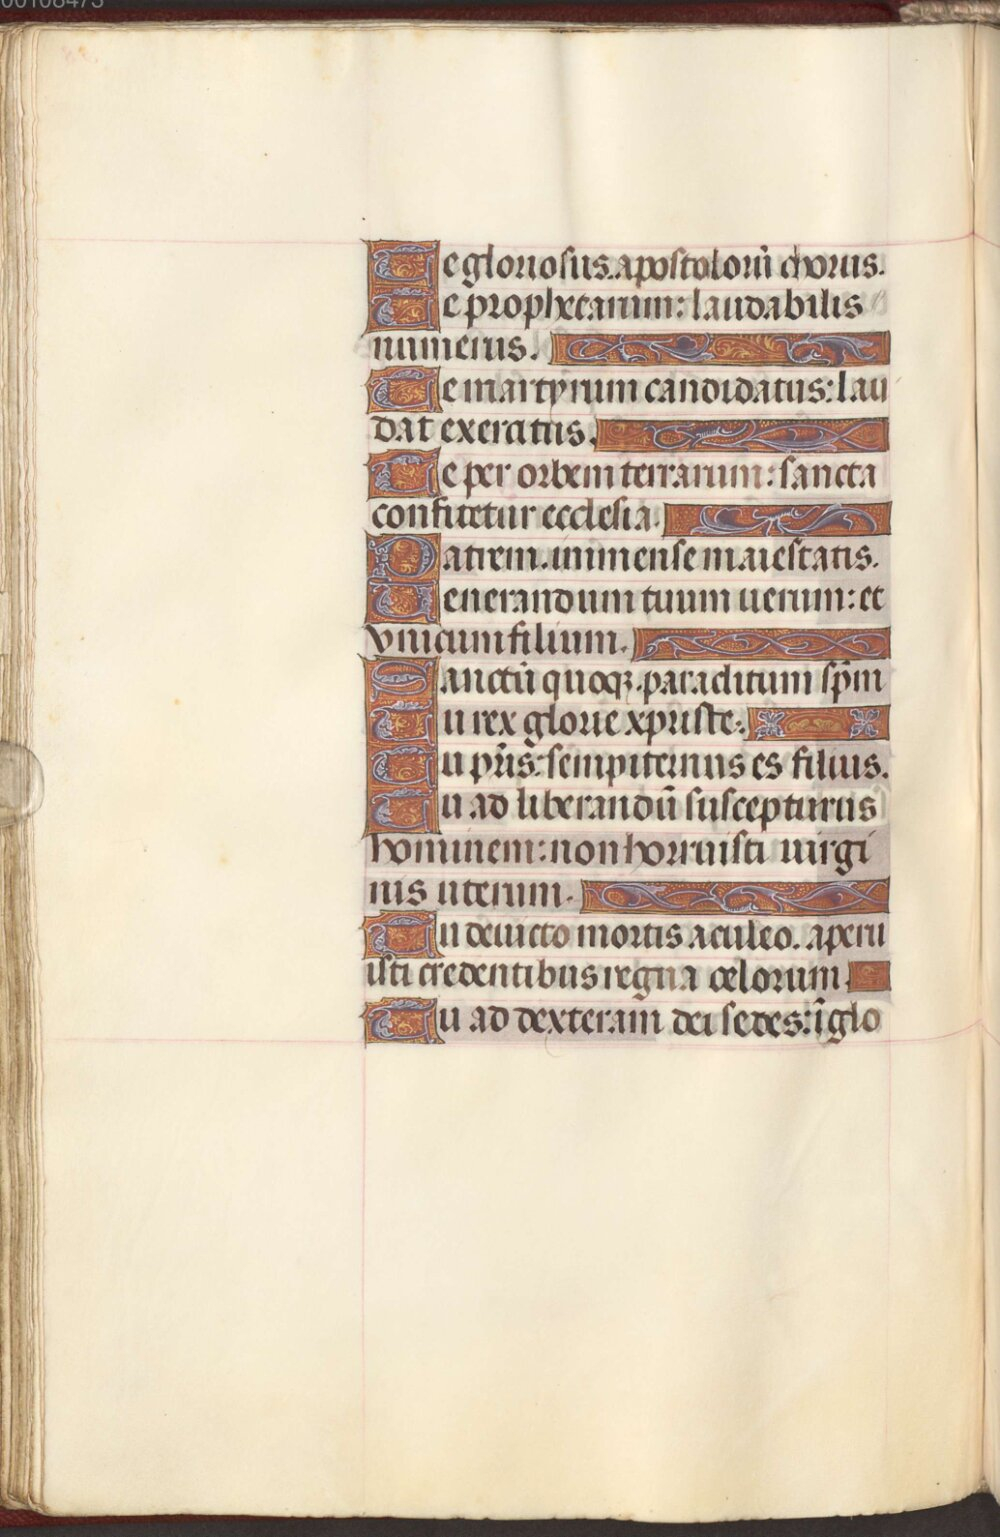 00108473
Te gloriosus. apostolorū chorus.
Te prophetarum: laudabilis
numerus.
Te martyrum candidatus: lau
dat exercitus.
Te per orbem terrarum: sancta
confitetur ecclesia.
Patrem. immense maiestatis.
Uenerandum tuum uerum: et
vnicum filium.
Sanctū quoqꝫ. paraclitum sp̄m
Tu rex glorie xpriste.
Tu pr̄is: sempiternus es filius.
Tu ad liberandū suscepturus
hominem: non horruisti uirgi
nis uterum.
Tu deuicto mortis aculeo. aperu
isti credentibus regna celorum.
Tu ad dexteram dei sedes: ī glo